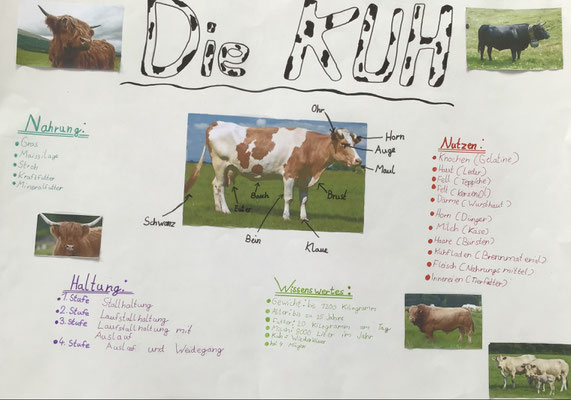 Die KUH
Nahrung:
Gras
Maissilage
Stroh
Kraftfutter
Mineralfutter
Ohr
Horn
Auge
Maul
Brust
Bauch
Euter
Schwanz
Bein
Klaue
Nutzen:
Knochen (Gelatine)
Haut (Leder)
Fell (Teppiche)
Fett (Kerzen)
Därme (Wursthaut)
Horn (Dünger)
Milch (Käse)
Haare (Bürsten)
Kuhfladen (Brennmaterial)
Fleisch (Nahrungsmittel)
Innereien (Tierfutter)
Haltung:
1. Stufe Stallhaltung
2. Stufe Laufstallhaltung
3. Stufe Laufstallhaltung mit
Auslauf
4. Stufe Auslauf und Weidegang
Wissenswertes:
Kilogramm
Alter: bis zu Jahre
Futter: Kilogramm am Tag
8000 Liter im Jahr
Wiederkäuer
Mägen